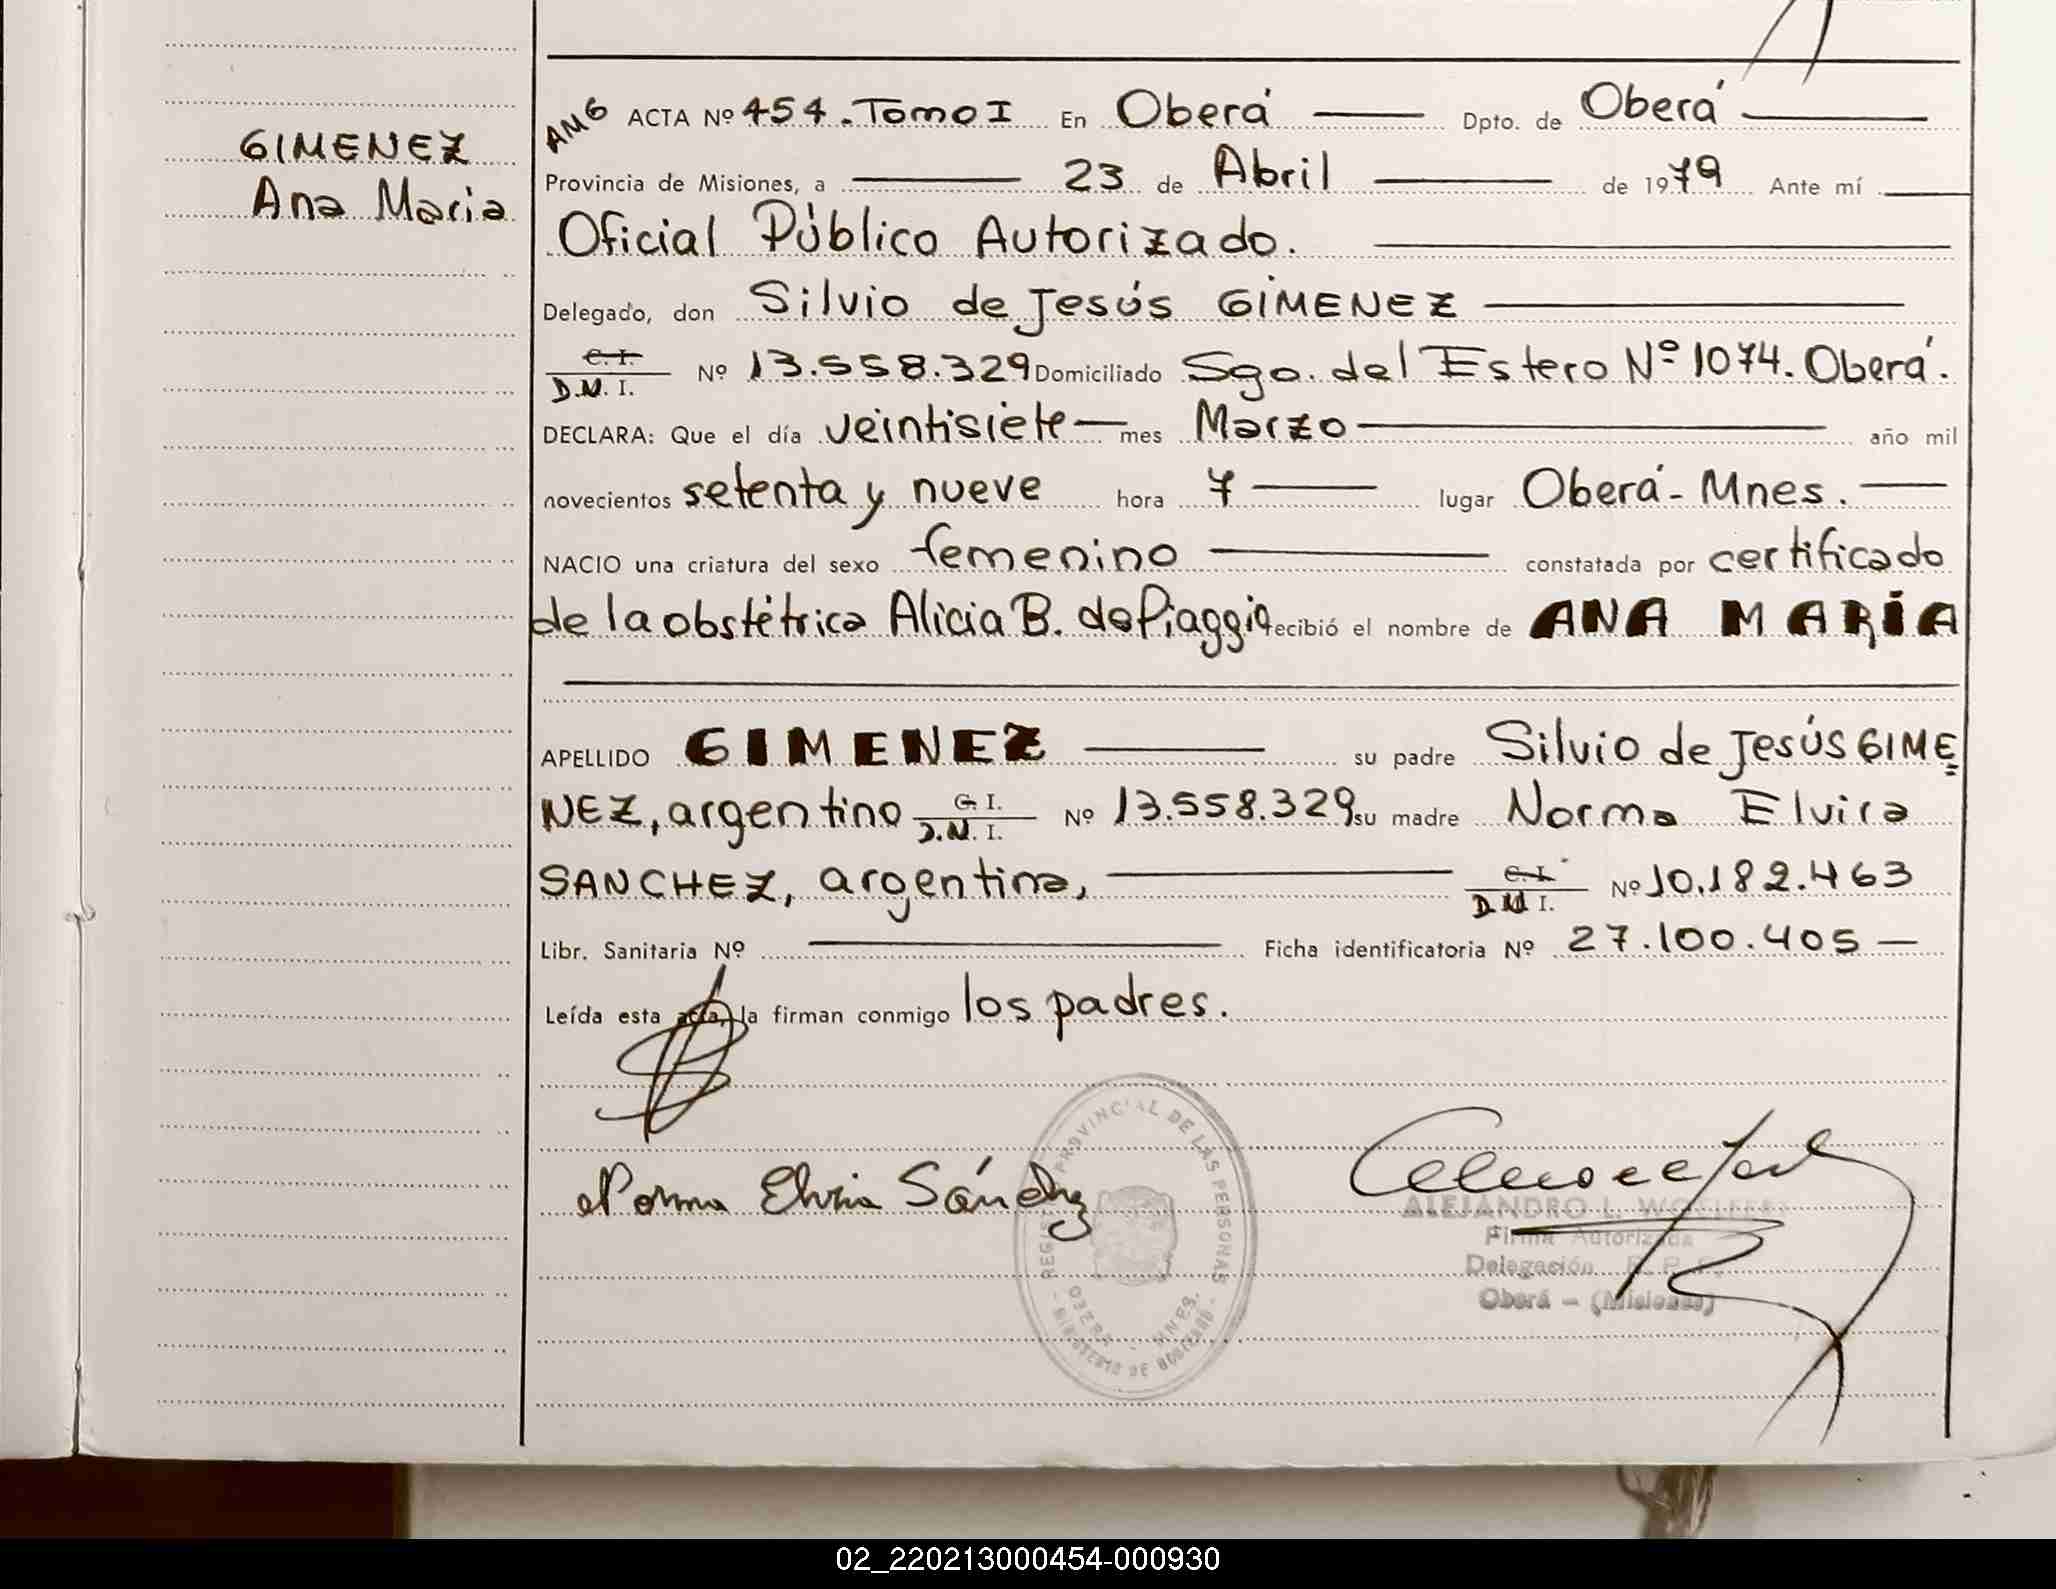 GIMENEZ
Ana Maria
AMG ACTA Nº 454. Tomo I En Oberá Dpto. de Oberá
Provincia de Misiones, a 23 de Abril de 1979 Ante mí
Oficial Público Autorizado.
Delegado, don Silvio de Jesús GIMENEZ
C. I.
D.N. I. Nº 13.558.329 Domiciliado Sgo. del Estero Nº 1074. Oberá.
DECLARA: Que el día veintisiete mes Marzo año mil
novecientos setenta y nueve hora 7 lugar Oberá - Mnes.
NACIO una criatura del sexo femenino constatada por certificado
de la obstétrica Alicia B. de Piaggio recibió el nombre de ANA MARÍA
APELLIDO GIMENEZ su padre Silvio de Jesús GIME
NEZ, argentino C. I.
D.N. I. Nº 13.558.329 su madre Norma Elvira
SANCHEZ, argentina, C. I.
D.N. I. Nº 10.182.463
Libr. Sanitaria Nº Ficha identificatoria Nº 27.100.405
Leída esta acta, la firman conmigo los padres.
Norma Elvira Sánchez
REGISTRO PROVINCIAL DE LAS PERSONAS
OBERA - MNES.
MINISTERIO DE GOBIERNO
ALEJANDRO L.
Firma Autorizada
Delegación R. P. P.
Oberá - (Misiones)
02_220213000454-000930